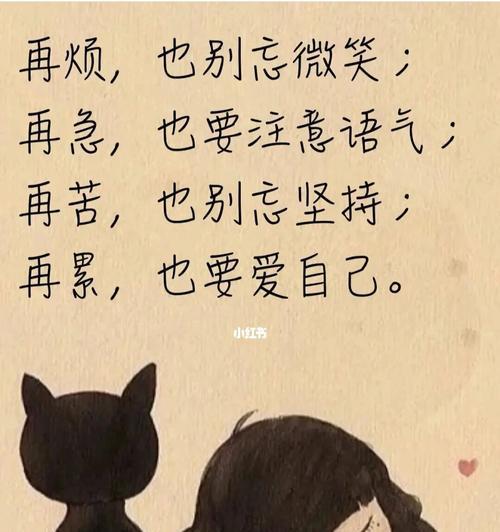 再烦，也别忘微笑；
再急，也要注意语气；
再苦，也别忘坚持；
再累，也要爱自己。
小红书